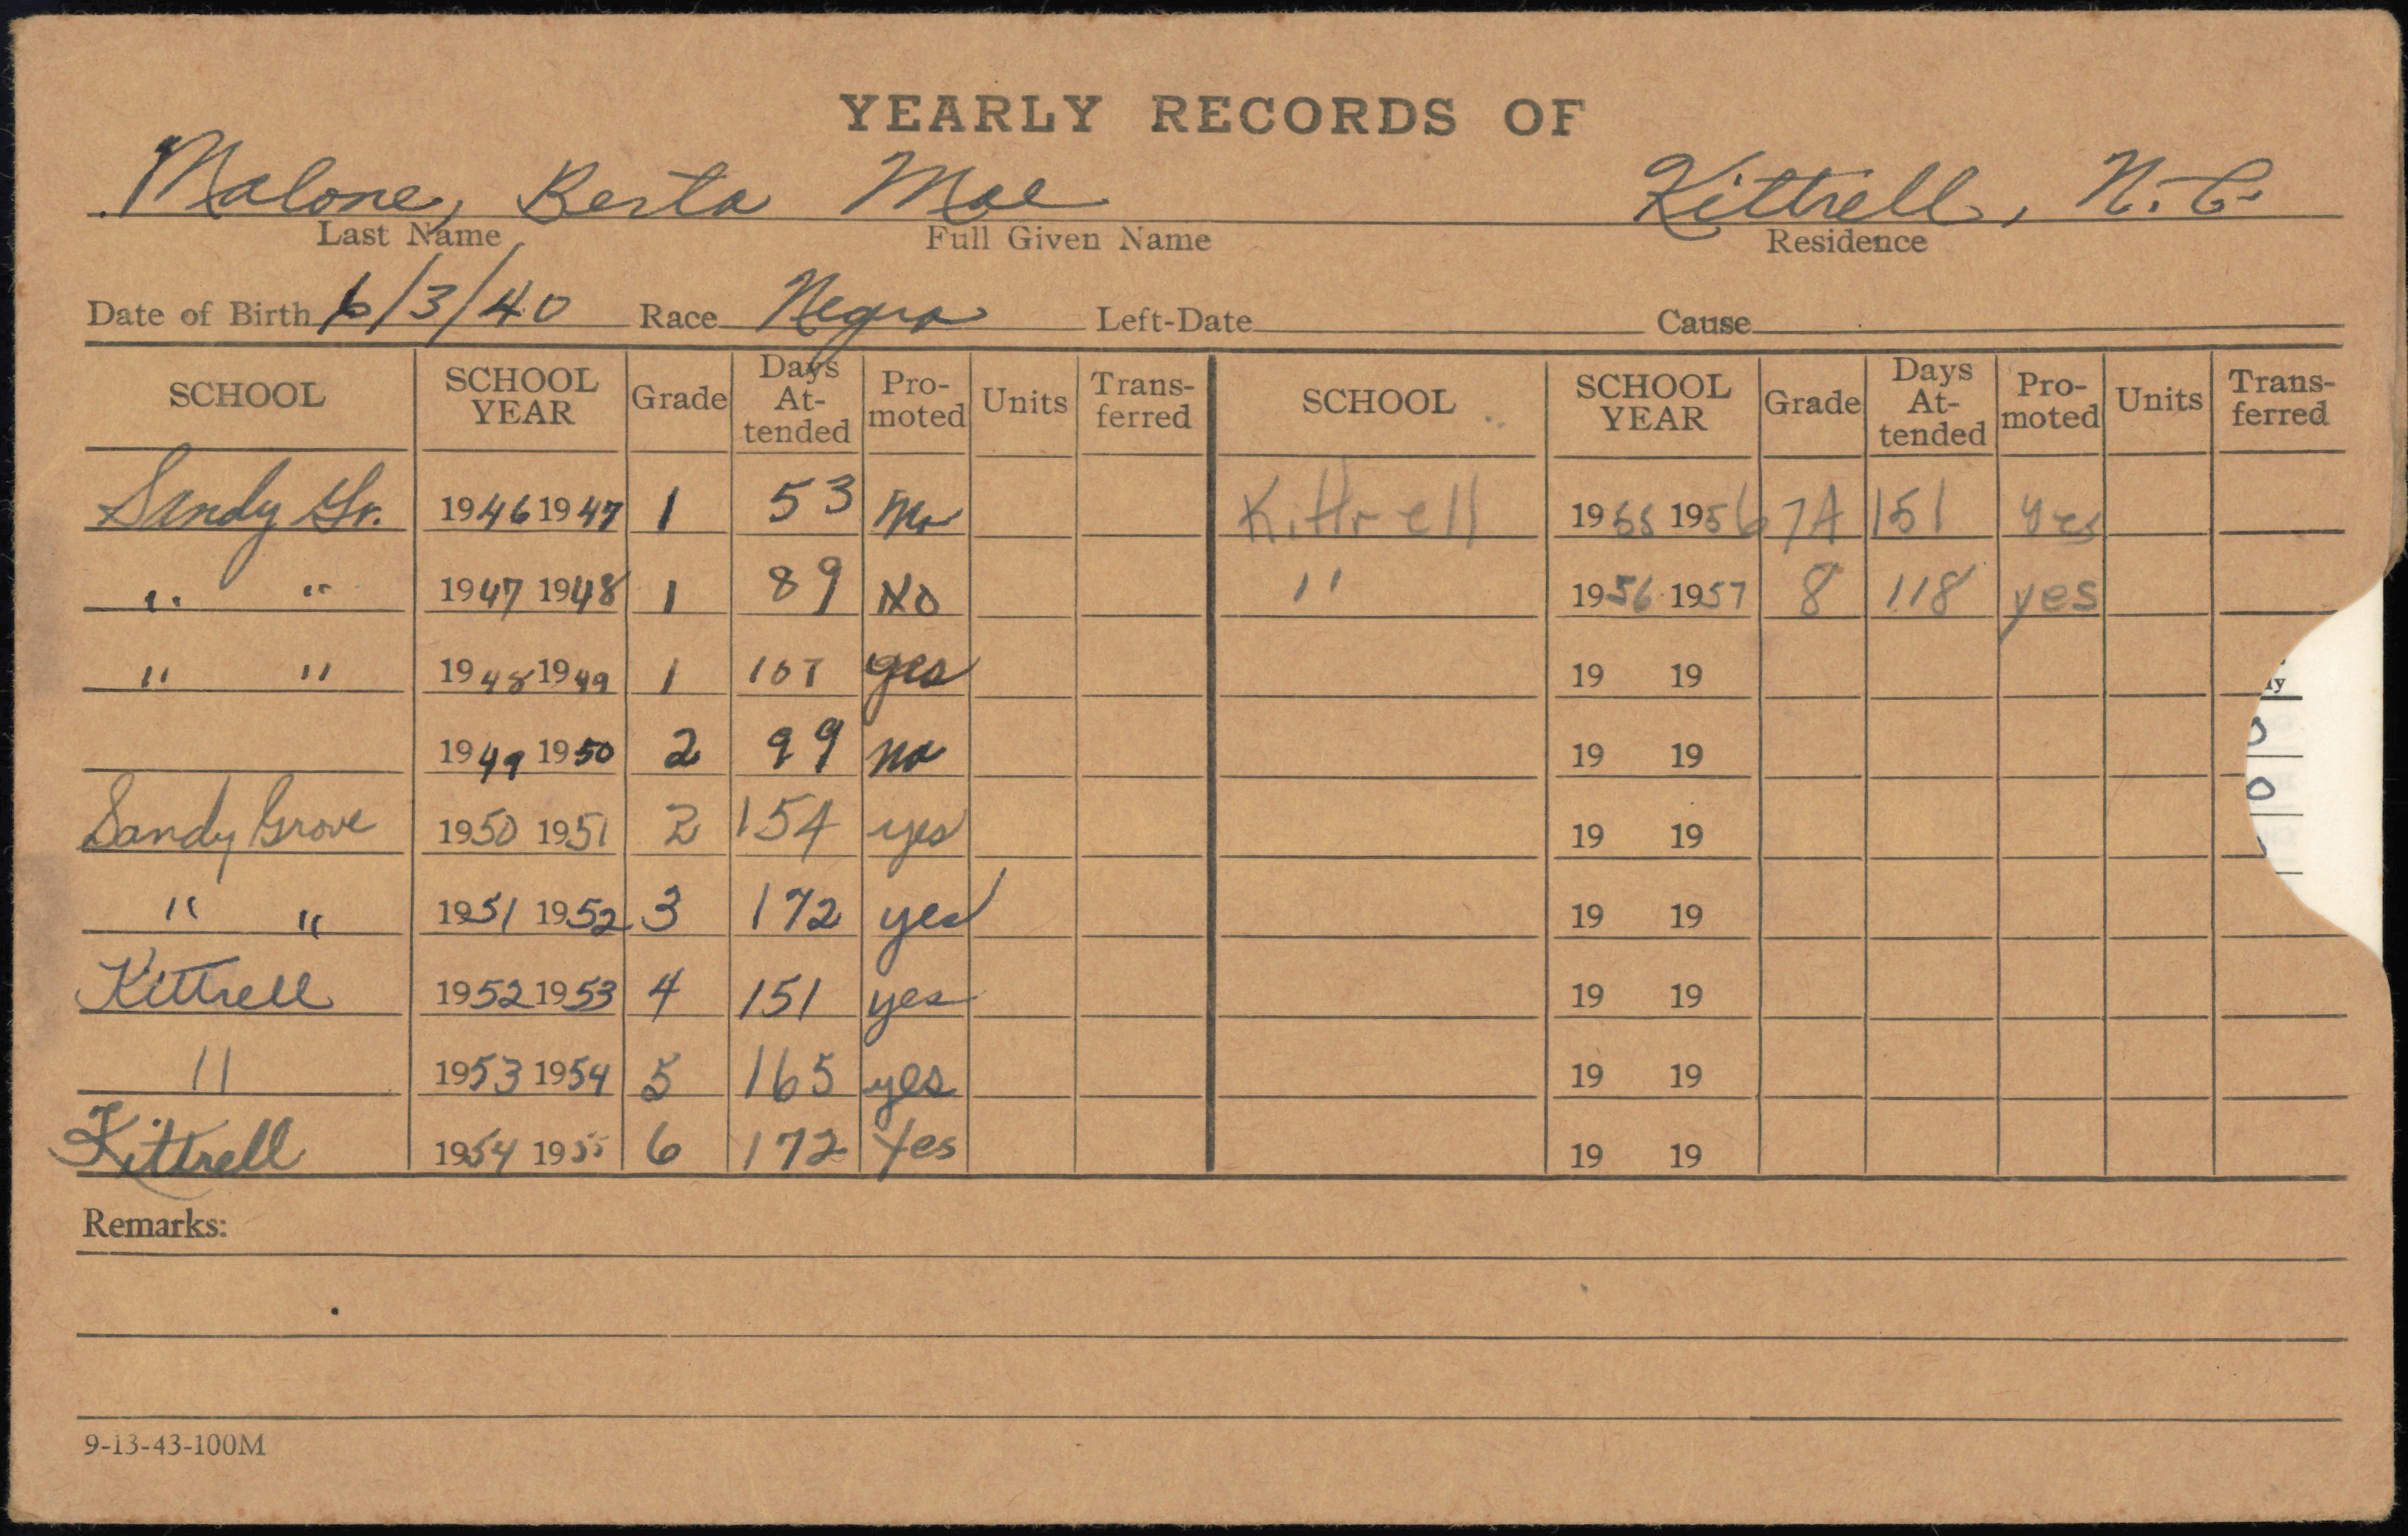 YEARLY RECORDS OF
Malone, Berta Mae Kittrell, N.C.
Last Name Full Given Name Residence
Date of Birth 6/3/40 Race Negro Left-Date Cause
SCHOOL SCHOOL YEAR Grade Days At-tended Pro-moted Units Trans-ferred SCHOOL SCHOOL YEAR Grade Days At-tended Pro-moted Units Trans-ferred
Sandy Gr. 1946 1947 1 53 No Kittrell 1955 1956 7A 151 yes
" " 1947 1948 1 89 No " 1956 1957 8 118 yes
" " 1948 1949 1 yes 19 19
1949 1950 2 99 no 19 19
Sandy Grove 1950 1951 2 154 yes 19 19
" " 1951 1952 3 172 yes 19 19
Kittrell 1952 1953 4 151 yes 19 19
" 1953 1954 5 165 yes 19 19
Kittrell 1954 1955 6 172 Yes 19 19
Remarks:
9-13-43-100M